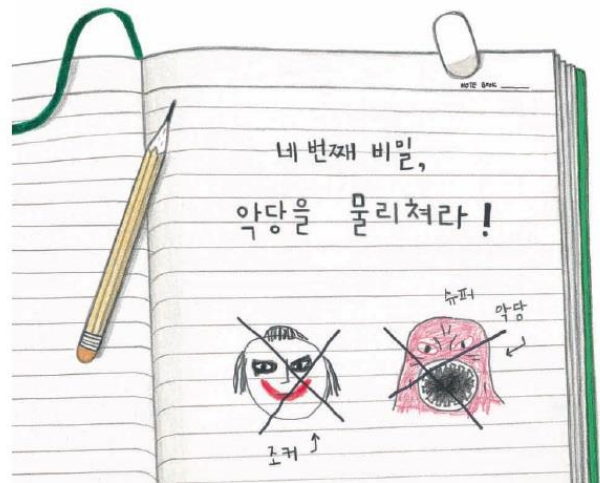 NOTE BOOK
네 번째 비밀,
악당을 물리쳐라!
슈퍼
악당
조커